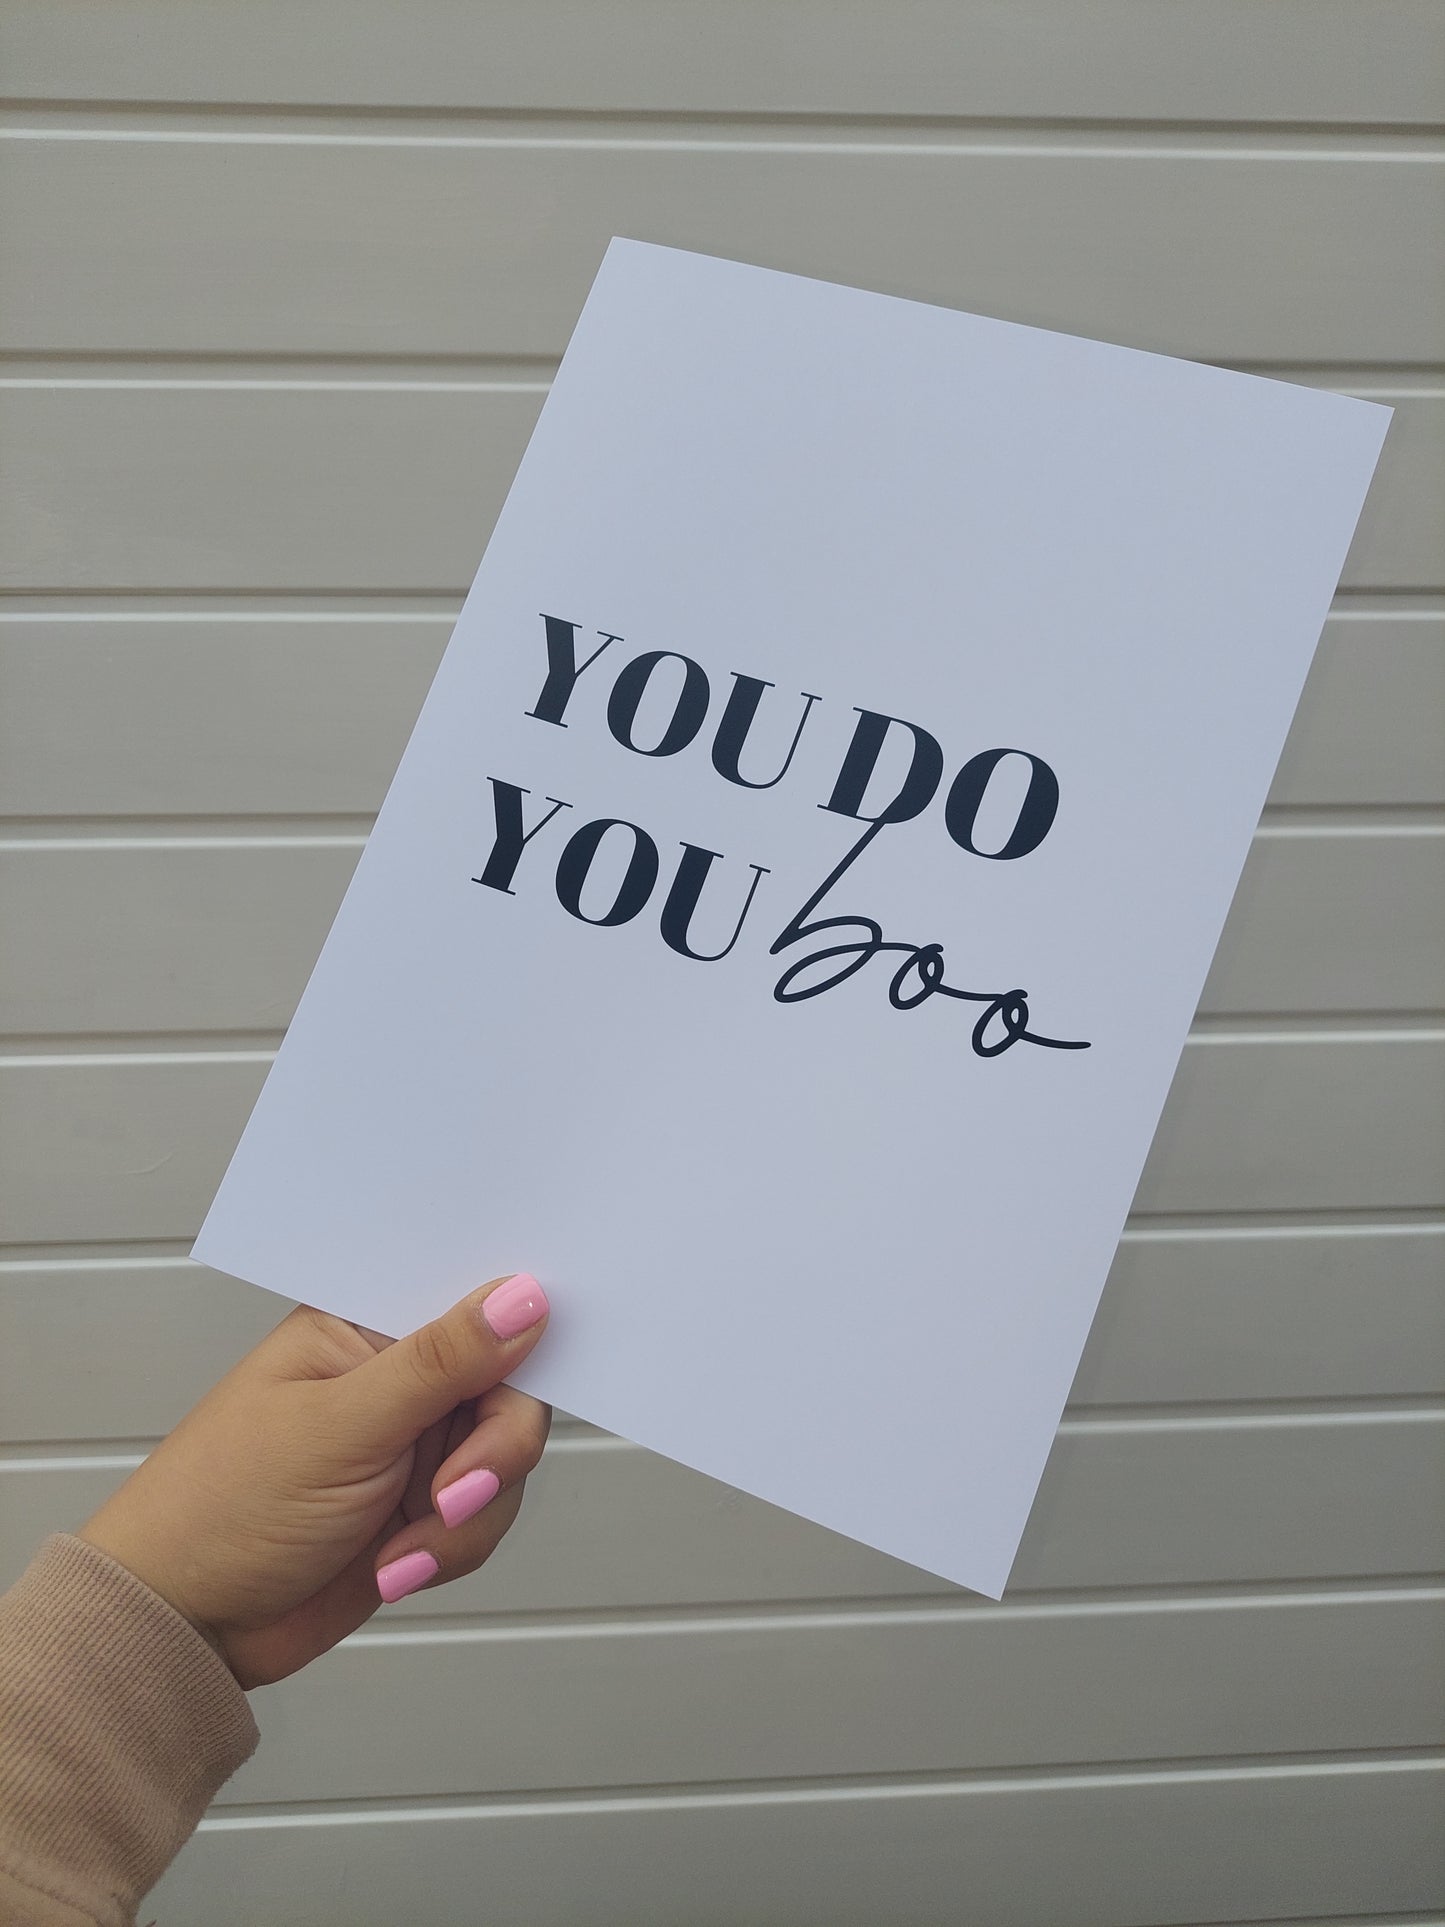 YOU DO
YOU boo